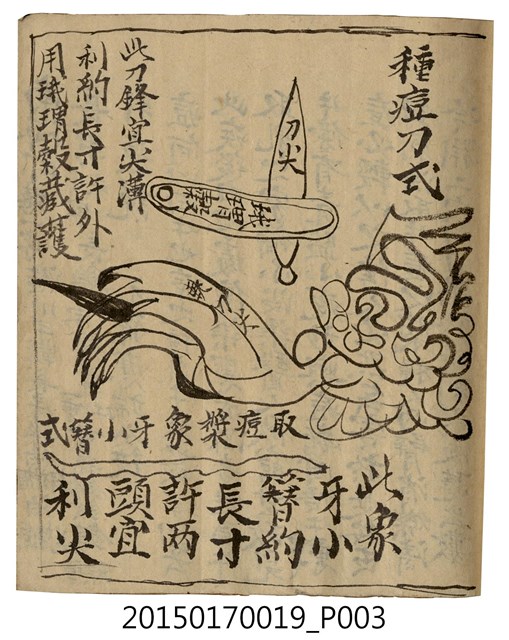 種痘刀式
刀尖
玳瑁殼
此刀鋒宜尖薄
利約長寸許外
用玳瑁殼藏護
取痘漿象牙小簪式
此象
牙小
簪約
長寸
許两
頭宜
利尖
20150170019_P003